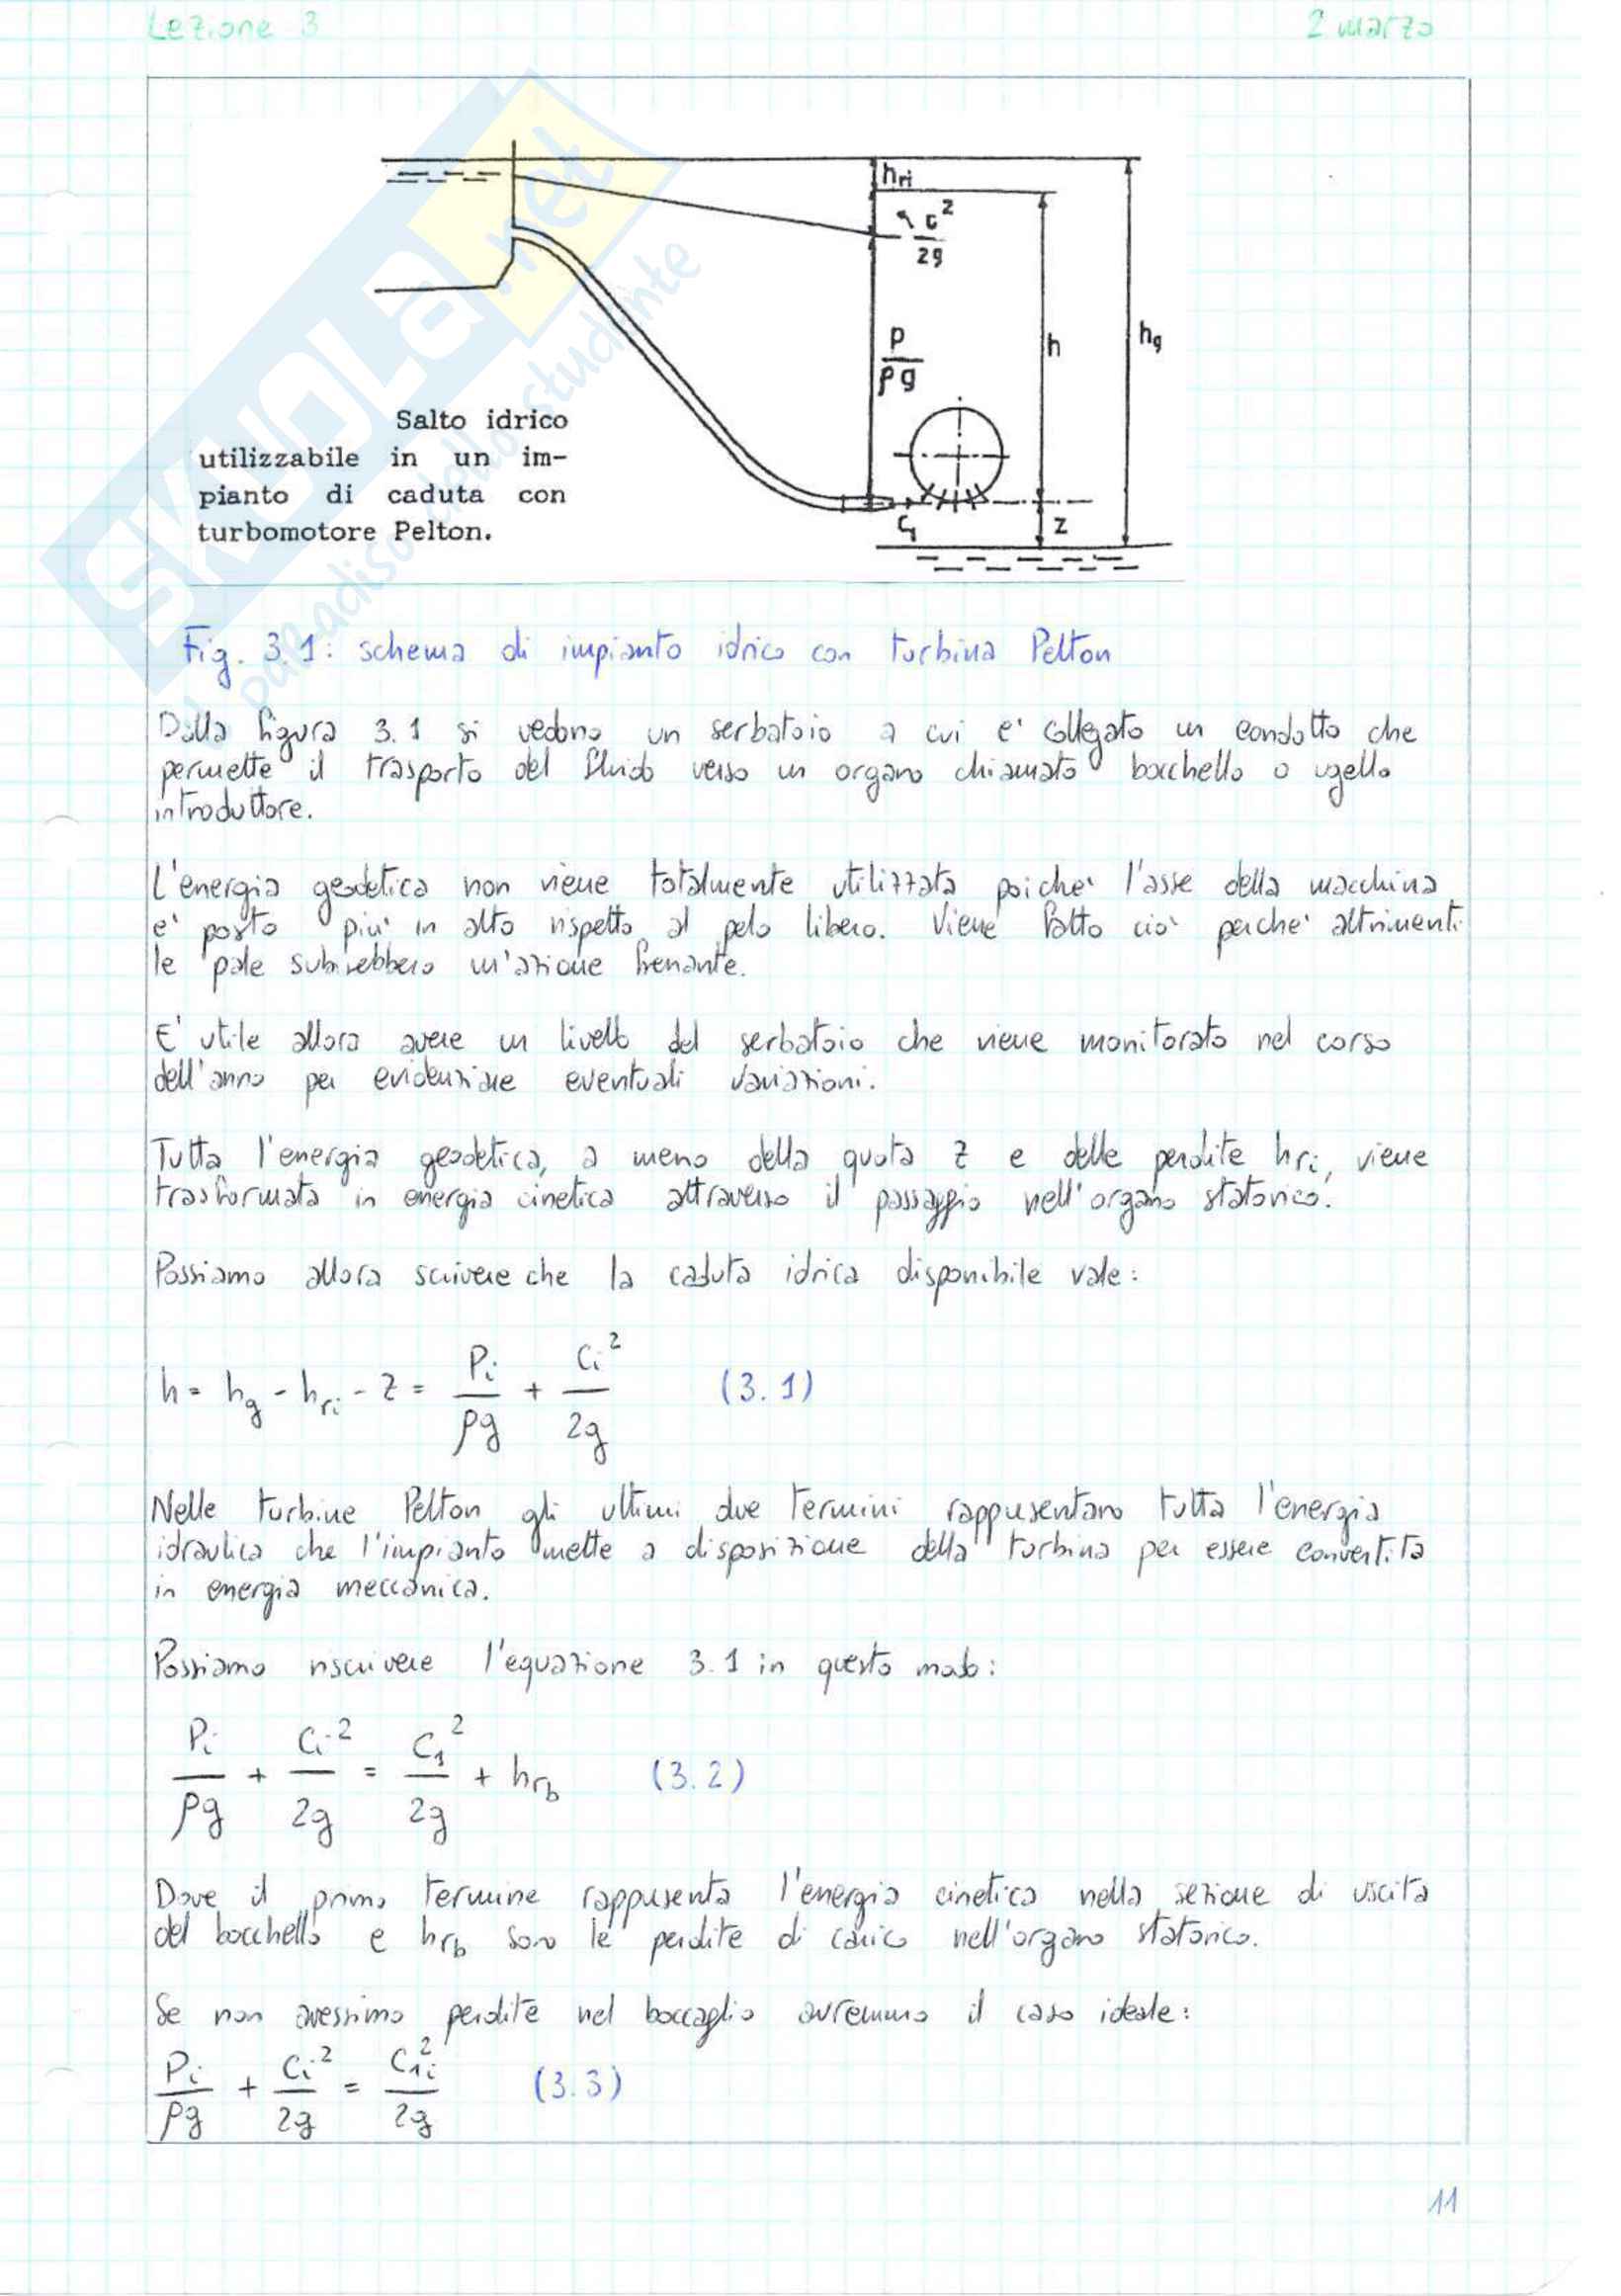 Lezione 3
2 marzo
SKUOLA.net
il paradiso dello studente
hri
c²
2g
P
ρg
h
hg
C1
z
Salto idrico
utilizzabile in un im-
pianto di caduta con
turbomotore Pelton.
Fig. 3.1: schema di impianto idrico con turbina Pelton
Dalla figura 3.1 si vedono un serbatoio a cui e' collegato un condotto che
permette il trasporto del fluido verso un organo chiamato bocchello o ugello
introduttore.
L'energia geodetica non viene totalmente utilizzata poiche' l'asse della macchina
e' posto piu' in alto rispetto al pelo libero. Viene fatto cio' perche' altrimenti
le pale subirebbero un'azione frenante.
E' utile allora avere un livello del serbatoio che viene monitorato nel corso
dell'anno per evidenziare eventuali variazioni.
Tutta l'energia geodetica, a meno della quota z e delle perdite hri, viene
trasformata in energia cinetica attraverso il passaggio nell'organo statorico.
Possiamo allora scrivere che la caduta idrica disponibile vale:
h = hg - hri - z = Pi/ρg + Ci²/2g (3.1)
Nelle turbine Pelton gli ultimi due termini rappresentano tutta l'energia
idraulica che l'impianto mette a disposizione della turbina per essere convertita
in energia meccanica.
Possiamo riscrivere l'equazione 3.1 in questo modo:
Pi/ρg + Ci²/2g = C1²/2g + hrb (3.2)
Dove il primo termine rappresenta l'energia cinetica nella sezione di uscita
del bocchello e hrb sono le perdite di carico nell'organo statorico.
Se non avessimo perdite nel boccaglio avremmo il caso ideale:
Pi/ρg + Ci²/2g = C1i²/2g (3.3)
11